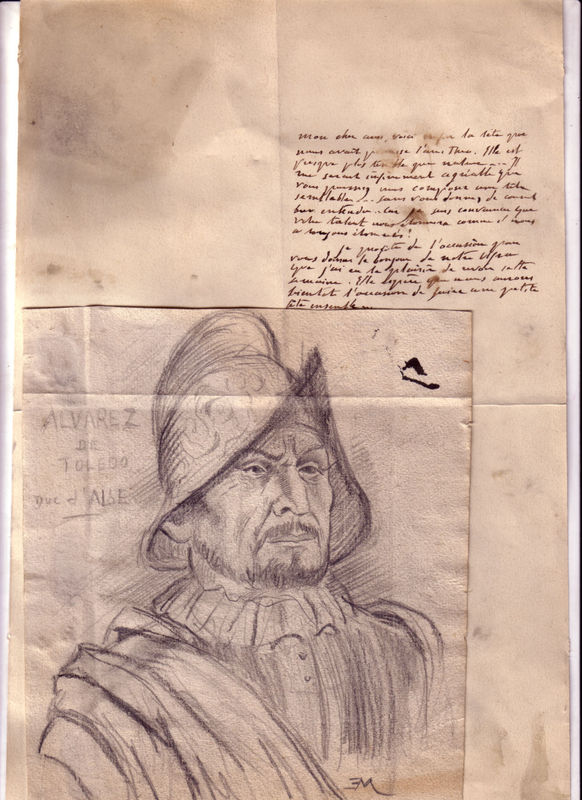 mon cher ami, voici la tête que
nous avait promise l'ami Theo. Elle est
presque plus terrible que nature... Il
me serait infiniment agréable que
vous puissiez nous composer une tête
semblable... sans vous donner de
bien entendu. Car je suis convaincu que
votre talent nous étonnera comme il nous
a toujours étonnés!
Je profite de l'occasion pour
vous donner le bonjour de notre
que j'ai eu le plaisir de voir cette
semaine. Elle espère que nous aurons
bientôt l'occasion de faire une petite
fête ensemble...
ALVAREZ
DE
TOLEDO
DUC d'ALBE
EM